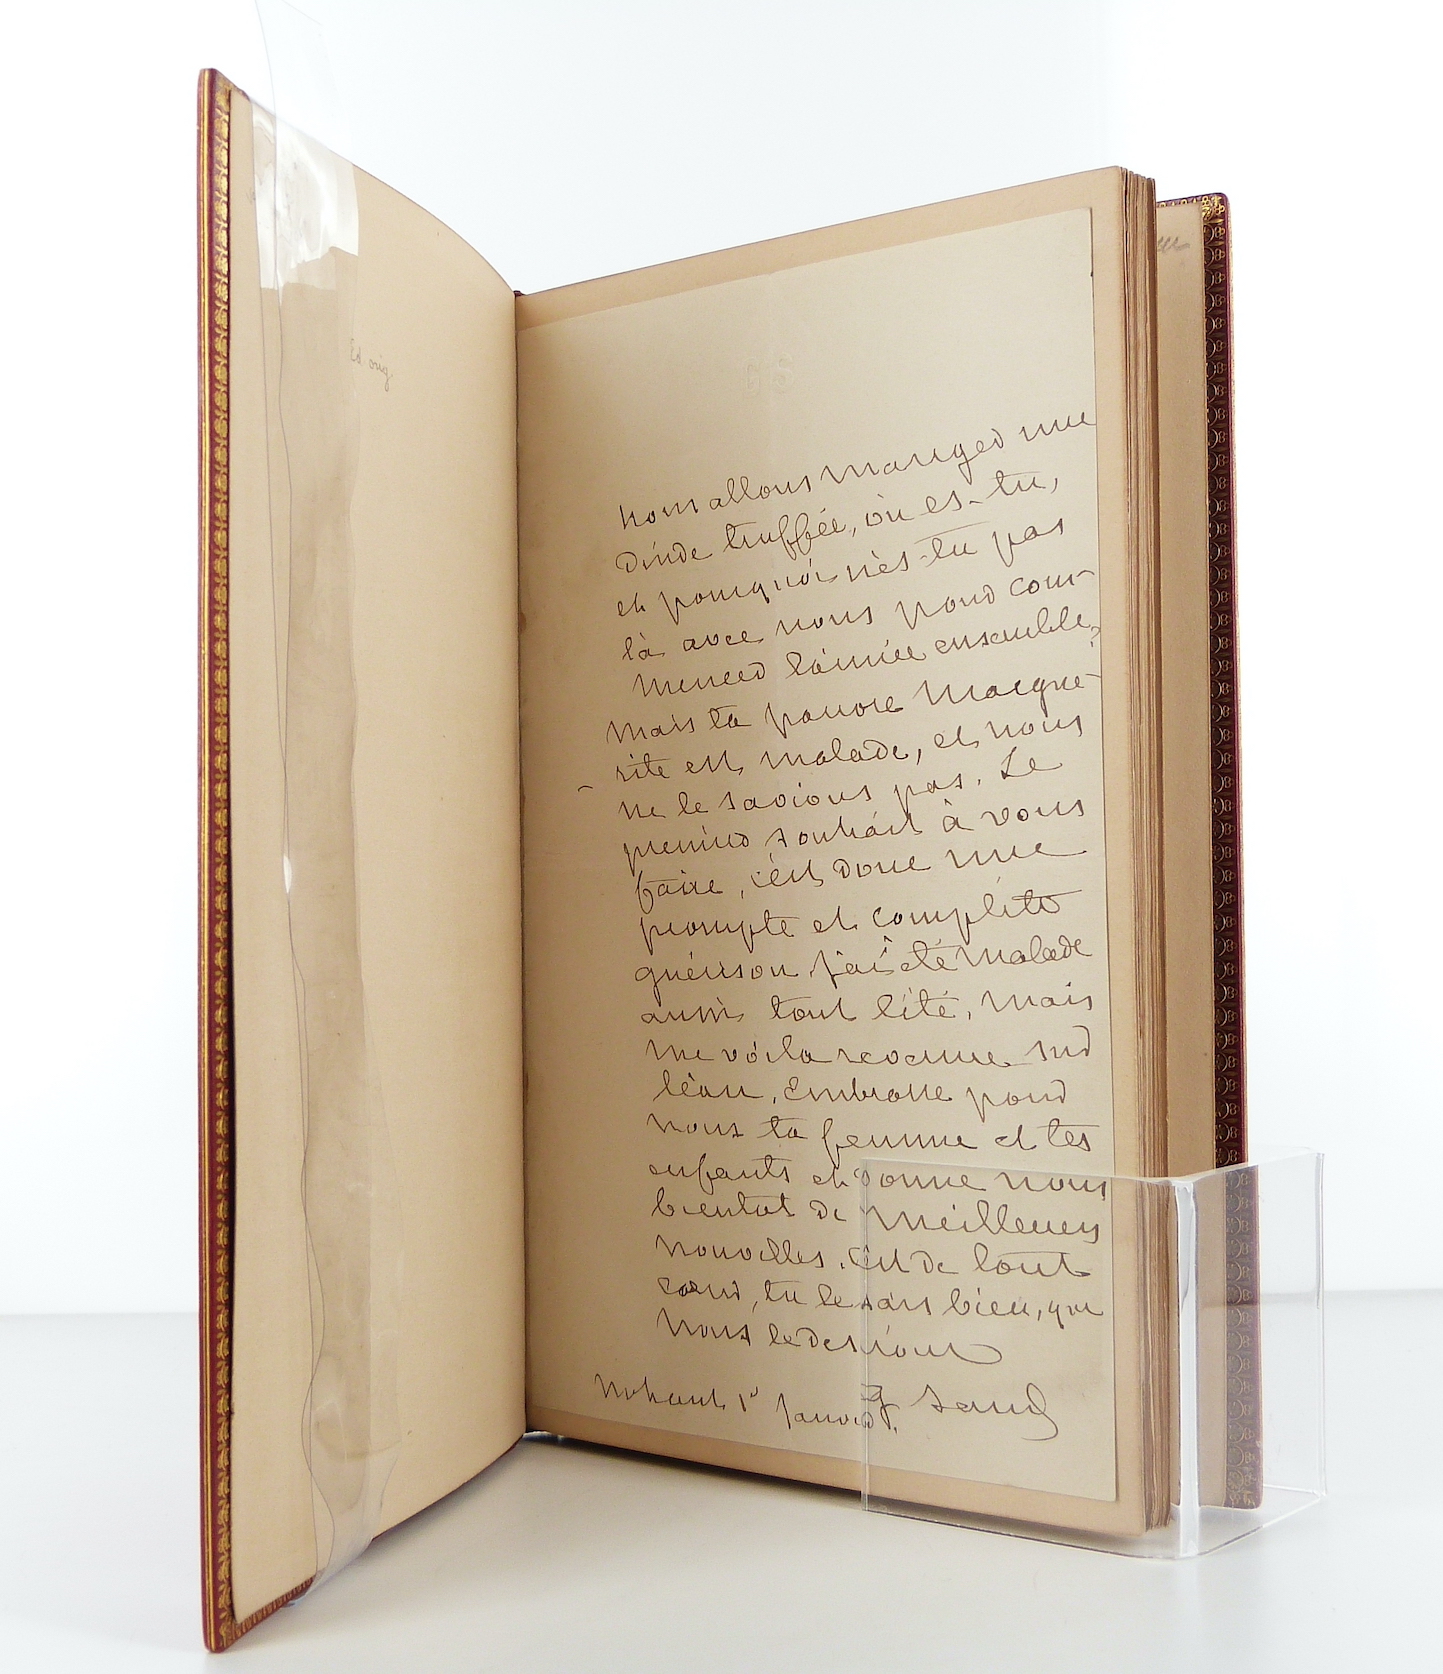 Ed orig.
GS
nous allons manger une
dinde truffée, où es-tu,
et pourquoi n'es-tu pas
là avec nous pour com-
mencer l'année ensemble?
Mais ta pauvre Margue-
rite est malade, et nous
ne le savions pas. Le
premier souhait à vous
faire, c'est donc une
prompte et complète
guérison, j'ai été malade
aussi tout l'été, mais
me voila revenue sur
l'eau, Embrasse pour
nous ta femme et tes
enfants et donne nous
bientot de meilleures
nouvelles. C'est de tout
cœur, tu le sais bien, que
nous le desirons
G Sand
Nohant 1r janvier.